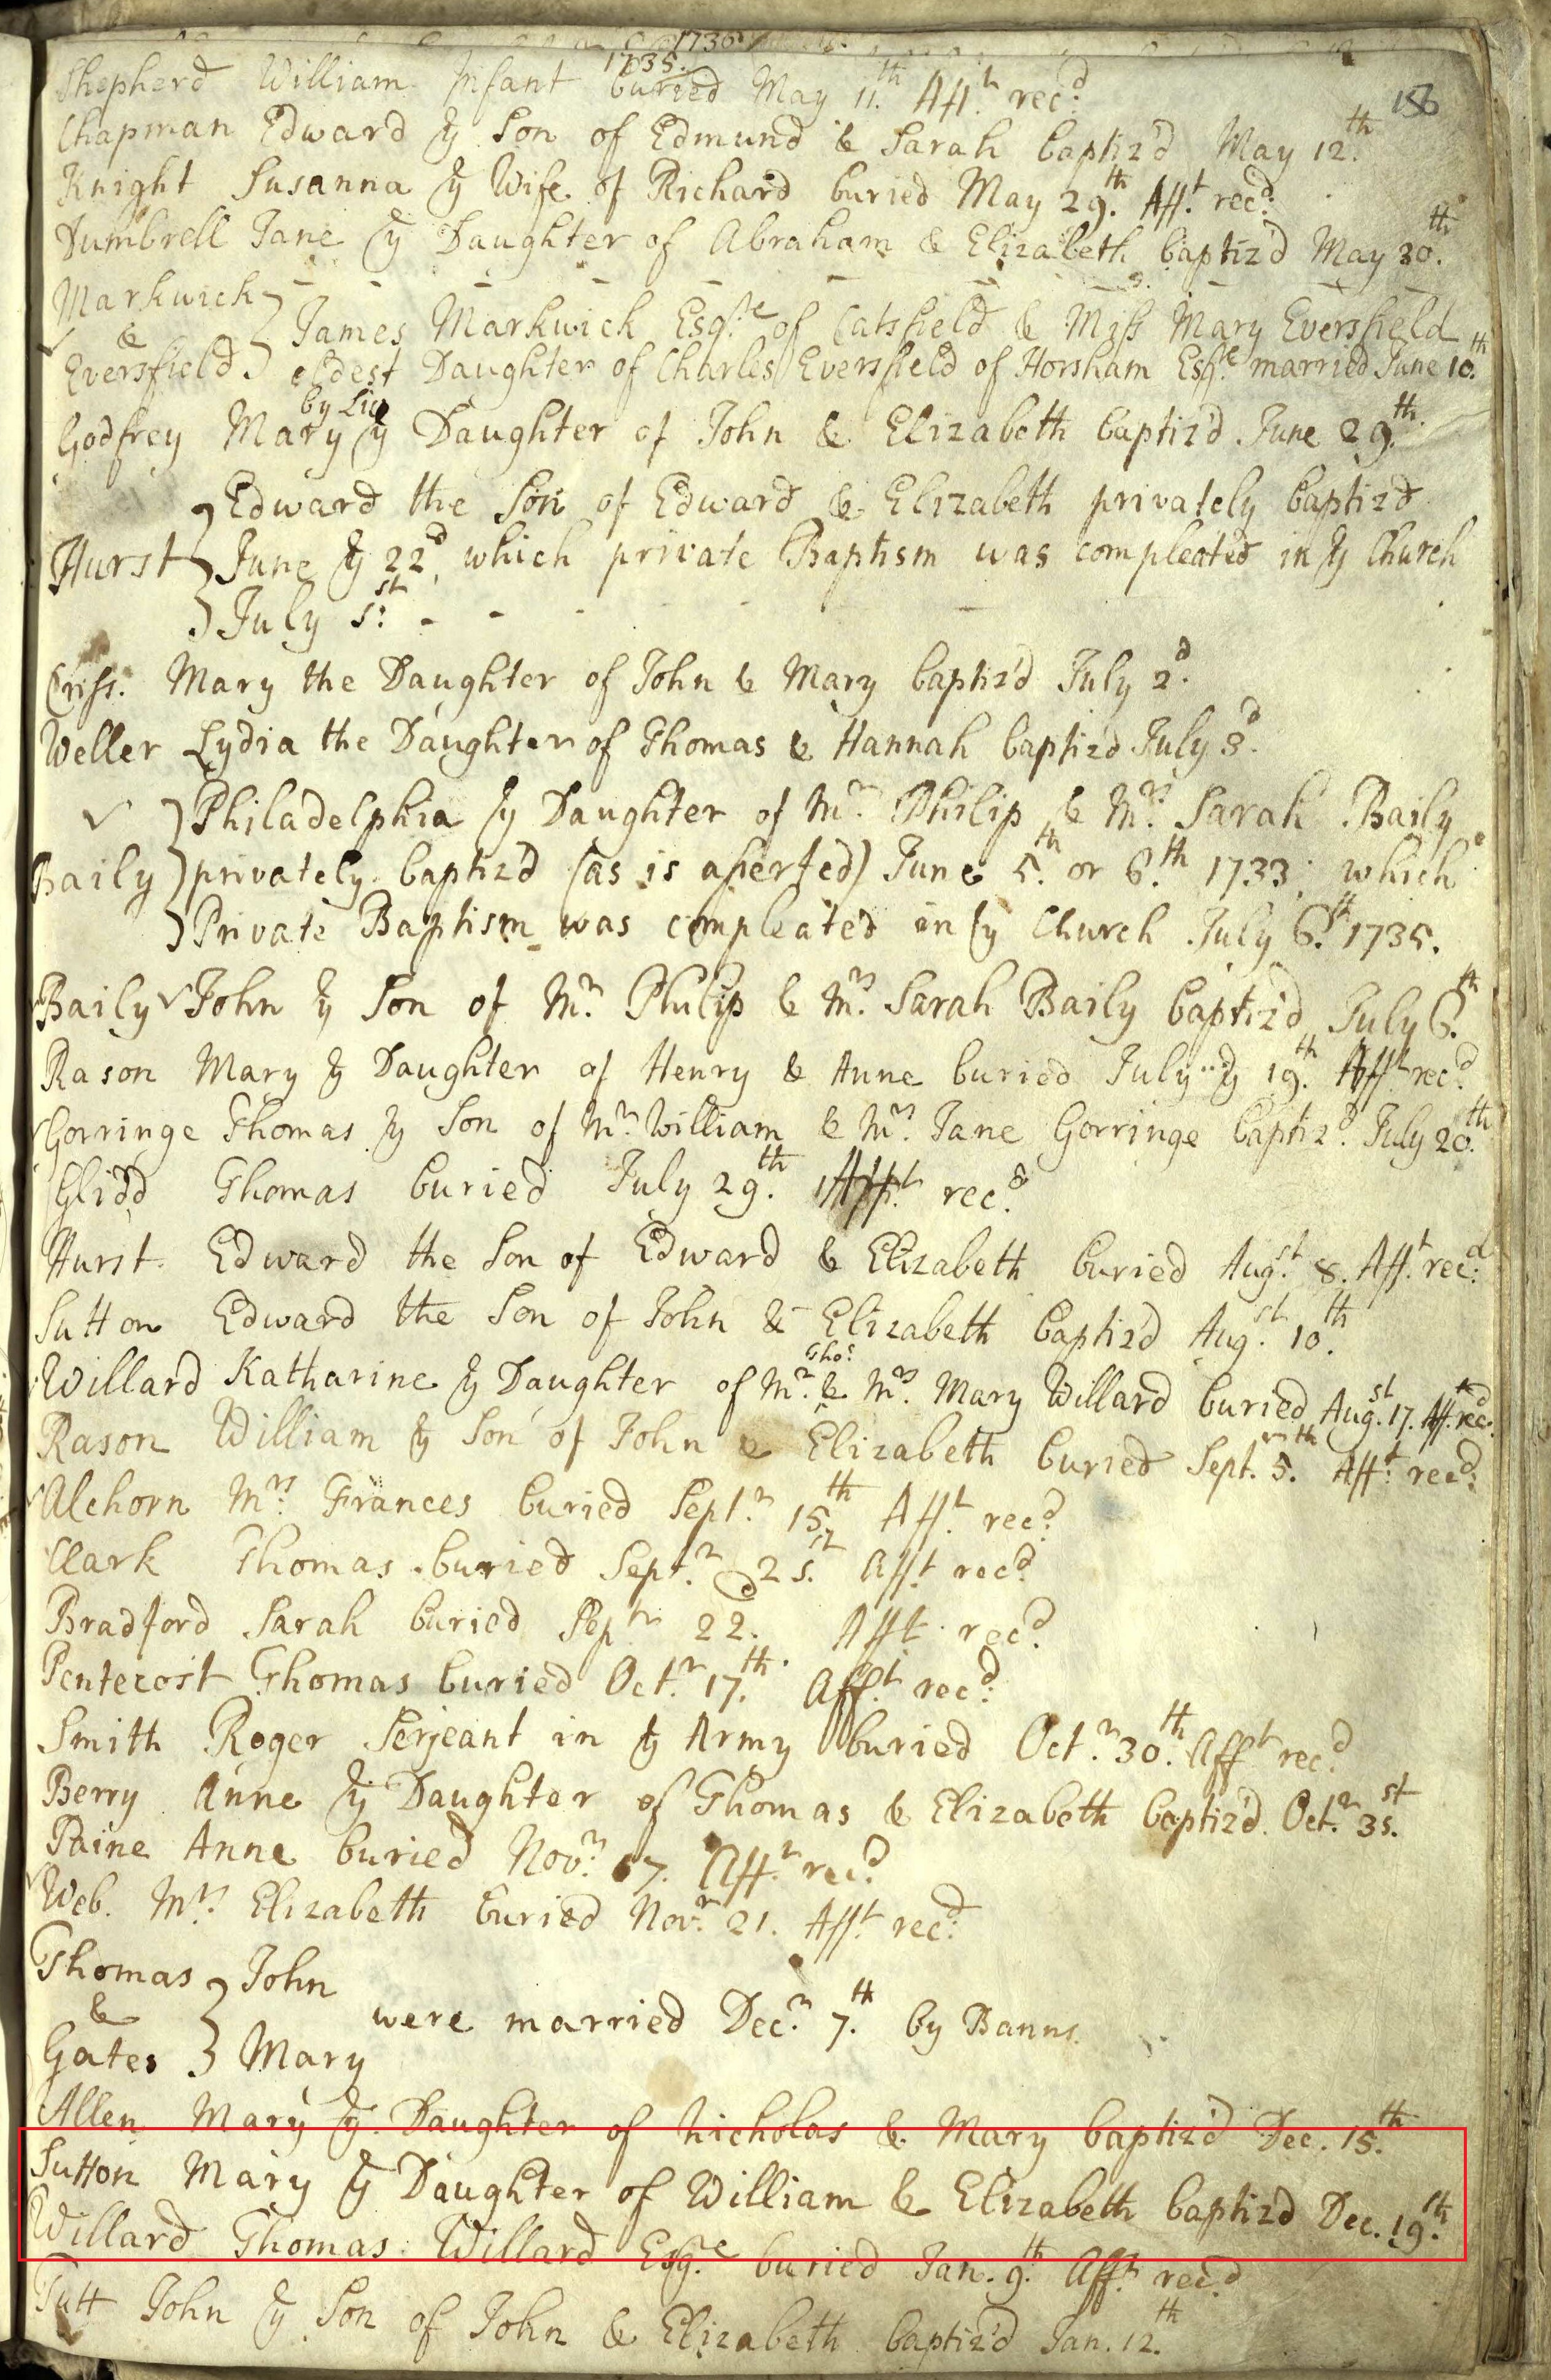 1736
1735.
Shepherd William Infant buried May 11.th Aff.t rec.d
186
Chapman Edward ye Son of Edmund & Sarah baptiz'd May 12.th
Knight Susanna ye Wife of Richard buried May 29.th Aff.t rec.d
Dumbrell Jane ye Daughter of Abraham & Elizabeth baptiz'd May 30.th
Markwick
& } James Markwick Esq.re of Catsfield & Miss Mary Eversfield
Eversfield } eldest Daughter of Charles Eversfield of Horsham Esq.re married June 10.th
by Lic
Godfrey Mary ye Daughter of John & Elizabeth baptiz'd June 29.th
Edward the Son of Edward & Elizabeth privately baptiz'd
Hurst } June ye 22.d, which private Baptism was compleated in ye Church
July 1:st - -
Criss. Mary the Daughter of John & Mary baptiz'd July 2.d
Weller Lydia the Daughter of Thomas & Hannah baptiz'd July 3.d
Philadelphia ye Daughter of Mr. Philip & Mrs. Sarah Baily
Baily } privately baptiz'd (as is asserted) June 5.th or 6.th 1733; which
Private Baptism was compleated in ye Church July 6.th 1735.
Baily John ye Son of Mr. Philip & Mrs. Sarah Baily baptiz'd July 6.th
Rason Mary ye Daughter of Henry & Anne buried July ye 19.th Aff.t rec.d
Gorringe Thomas ye Son of Mr. William & Mrs. Jane Gorringe baptiz.d July 20.th
Glidd Thomas buried July 29.th Aff.t rec.d
Hurst Edward the Son of Edward & Elizabeth buried Aug.st 8. Aff.t rec:d
Sutton Edward the Son of John & Elizabeth baptiz'd Aug.st 10.th
Willard Katharine ye Daughter of Mr. Tho.s & Mrs. Mary Willard buried Aug.st 17. Aff.t rec.d
Rason William ye Son of John & Elizabeth buried Sept. 5.th Aff.t rec.d
Alchorn Mrs. Frances buried Sept.r 15.th Aff.t rec.d
Clark Thomas buried Sept.r 21.st Aff.t rec.d
Bradford Sarah buried Sep.tr 22.d Aff.t rec.d
Pentecost Thomas buried Oct.r 17.th Aff.t rec.d
Smith Roger Serjeant in ye Army buried Oct.r 30.th Aff.t rec.d
Berry Anne ye Daughter of Thomas & Elizabeth baptiz'd Oct.r 31.st
Paine Anne buried Nov.r 17. Aff.t rec.d
Web. Mrs. Elizabeth buried Nov.r 21. Aff.t rec.d
Thomas } John
& were married Dec.r 7.th by Banns.
Gates } Mary
Allen Mary ye Daughter of Nicholas & Mary baptiz'd Dec. 15.th
Sutton Mary ye Daughter of William & Elizabeth baptiz'd Dec. 19.th
Willard Thomas Willard Esq.re buried Jan. 9.th Aff.t rec.d
Tutt John ye Son of John & Elizabeth baptiz'd Jan. 12.th